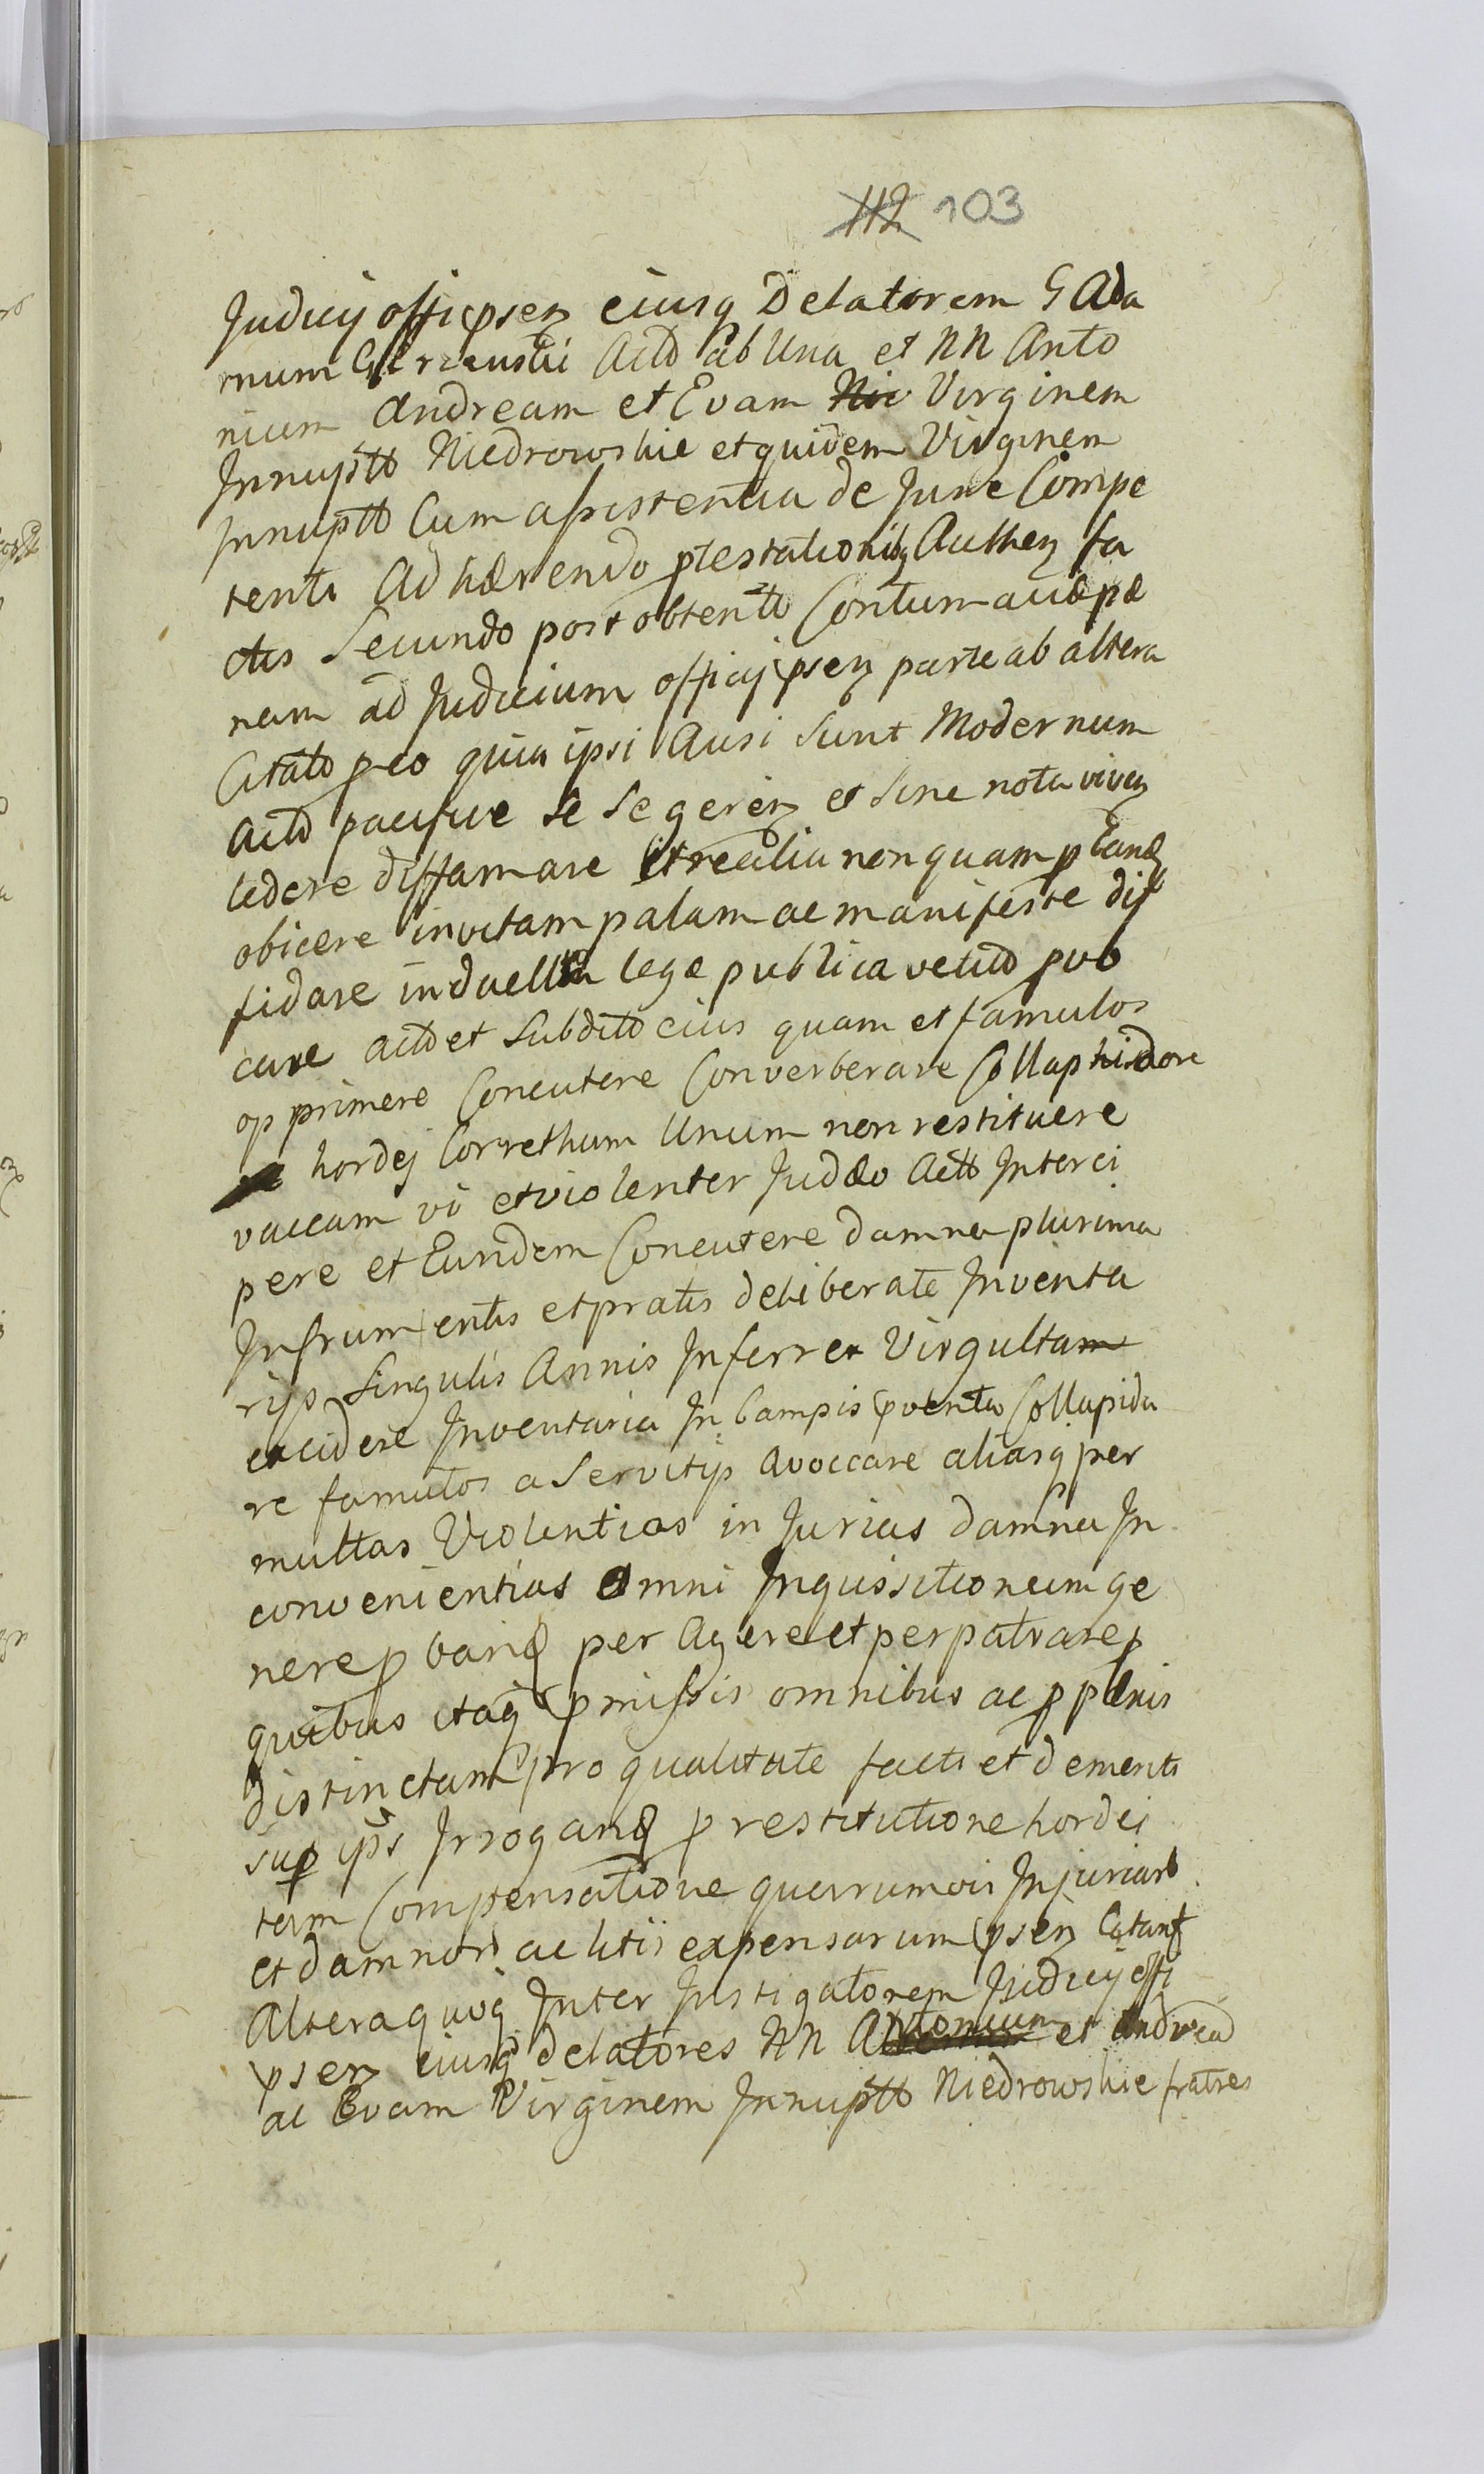 112 103
Judicij offi psen eiusq Delatorem G Ada
mum Gierzenski Actō ab Una et NN Anto
nium Andream et Evam Nie Virginem
Innuptō Niedrowskie et quidem Virginem
Innuptō Cum assistentia de Jure Compe
tenti Adhærendo ptestationibq Authen fa
ctis Secundo post obtentō Contumaciæ pæ
nam ad Judicium officij psen parte ab altera
Citatō p eo quia ipsi Ausi Sunt Modernum
Actō pacifice se Se geren et Sine nota viven
ledere diffamare et realia nonquam p Eand
obicere invitam palam ac manifeste dif
fidare in duella lege publica vetitō pvo
care actō et Subditō eius quam et famulos
opprimere Concutere Converberare Collaphisare
hordej Correthum Unum non restituere
vaccam vi et violenter Judæo Actō Interci
pere et Eundem Concutere damna plurima
In frumentis et pratis deliberate Inventa
rijs Singulis Annis Inferrer Virgultam
excidere Inventaria In Campis pventa Collapida
re famulos a Servitijs avoccare aliasq per
multas Violentias in Jurias damna In
convenientias omni Inquissitioneum ge
nere p band per Agere et perpatrare p
quibus itaq pmissis omnibus ac p pænis
distinctam pro qualitate facti et demeriti
sup ipš Irrogand p restitutione hordei
tam Compensatione quarrumvis Injuriarō
et damnorō ac litis expensarum psen Citant
Altera quoq Inter Instigatorem Judicij offi
psen eiusq delatores NN Antonium et Andrea
ac Evam Virginem Innuptō Niedrowskie fratres